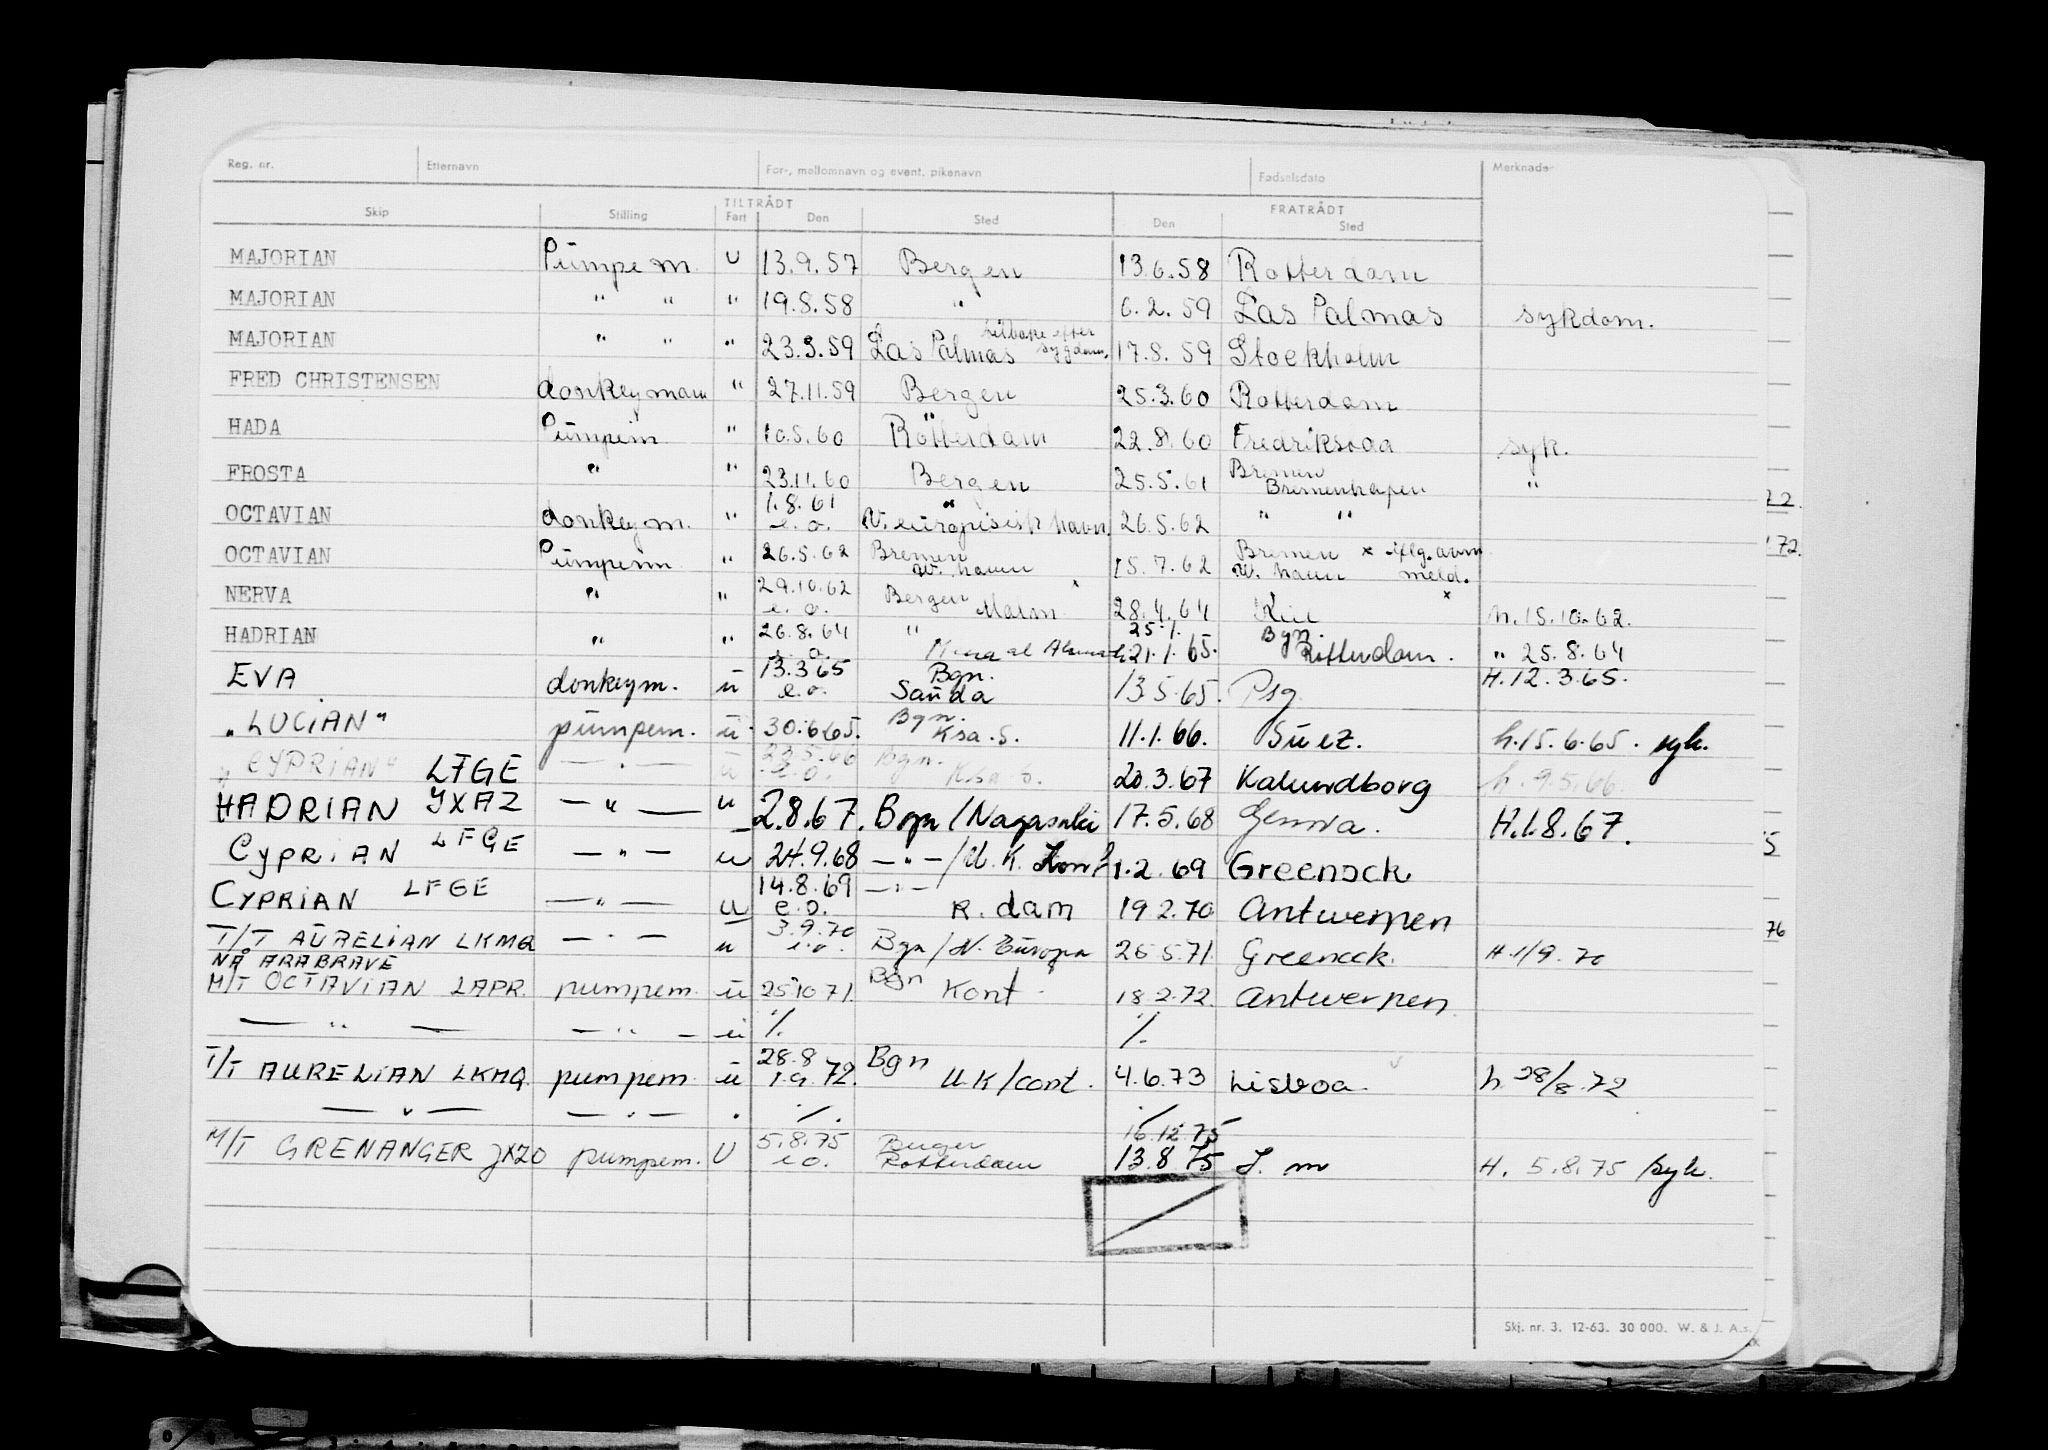 Reg. nr. Etternavn For-, mellomnavn og event. pikenavn Fødselsdato Merknader
TILTRÅDT FRATRÅDT
Skip Stilling Fart Den Sted Den Sted
MAJORIAN Pumpem. u 13.9.57 Bergen 13.6.58 Rotterdam
MAJORIAN " " " 19.8.58 " 6.2.59 Las Palmas sykdom.
MAJORIAN " " " 23.3.59 Las Palmas tilbake efter sygdom. 17.8.59 Stockholm
FRED CHRISTENSEN donkeyman " 27.11.59 Bergen 25.3.60 Rotterdam
HADA Pumpem " 10.5.60 Rotterdam 22.8.60 Fredriksvaa syk.
FROSTA " " 23.11.60 Bergen 25.5.61 Bremen Bremenhafen "
OCTAVIAN donkeym. " 1.8.61 e.o. " N. europisisk havn 26.5.62 " "
OCTAVIAN Pumpem " 26.5.62 Bremen W. haven 15.7.62 Bremen x iflg. avm W. haven meld.
NERVA " " 29.10.62 e.o. Bergen Malm 28.4.64 Kiel x h. 15.10.62.
HADRIAN " " 26.8.64 e.o. " 25.1. 21.1.65. Bgn. Rotterdam. " 25.8.64
EVA donkeym. u 13.3.65 e.o. Bgn. Sauda 13.5.65. Psg. H. 12.3.65.
"LUCIAN" pumpem. u 30.6.65. Bgn. Ksa.S. 11.1.66. Suez. h. 15.6.65. syk.
"CYPRIAN" LFGE — " — u 23.5.66 e.o. Bgn. 20.3.67 Kalundborg h. 9.5.66.
HADRIAN JXAZ — " — u 2.8.67. Bgn/Nagasaki 17.5.68 Genova. H. 1.8.67.
CYPRIAN LFGE — " — u 24.9.68 — " —/U.K. Kont 1.2.69 Greenock
CYPRIAN LFGE — " — u 14.8.69 e.o. — " — R.dam 19.2.70 Antwerpen
T/T AURELIAN LKMQ — " — u 3.9.70 e.o. Bgn/N. Europa 26.5.71. Greenock. H. 1/9.70
NÅ ARABRAVE
M/T OCTAVIAN LAPR. pumpem. u 25.10.71. Bgn Kont. 18.2.72. Antwerpen
— " — — " — u ./. ./.
T/T AURELIAN LKMQ. pumpem u 28.8 1.9.72. Bgn U.K/cont. 4.6.73 Lisboa. h. 28/8.72
— " — — " — " ./. ./.
16.12.75
M/T GRENANGER JXZO pumpem. U 5.8.75 e.o. Bergen Rotterdam 13.8.75 S. m H. 5.8.75 /syk.
Skj. nr. 3. 12-63. 30 000. W. & J. A.s.